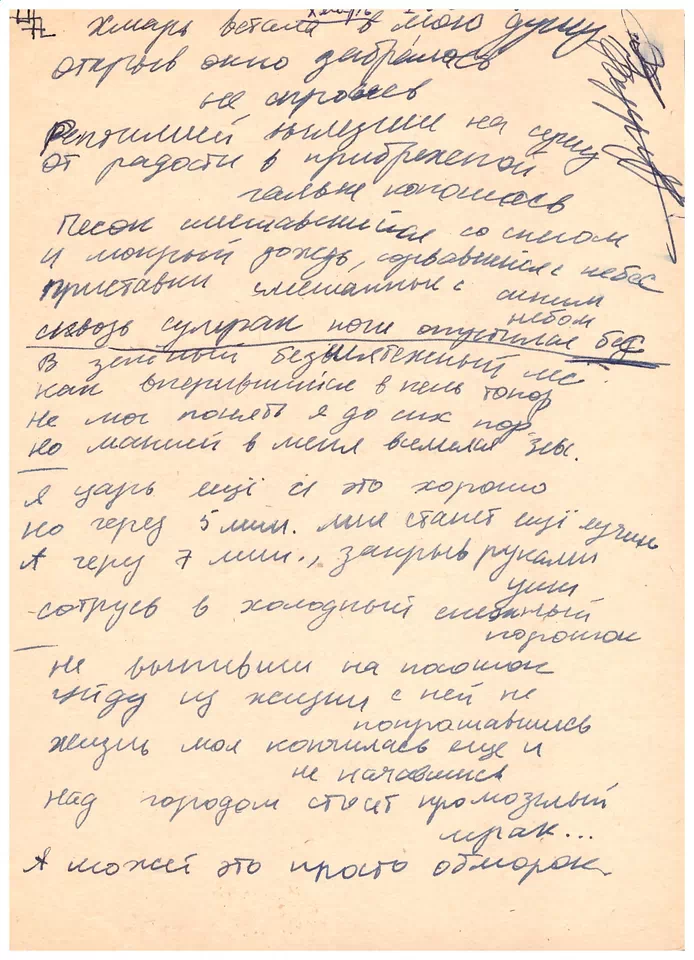 Хмарь
Хмарь встала в мою душу
открыв окно забралась
не спросясь
Рептилией вылезши на сушу
от радости в прибрежной
гальке копошась
Песок смешавшийся со снегом
и мокрый дождь, сорвавшийся с небес
приставки смешанные с синим
небом
сквозь сумрак ноги опустил бес
В зелёный безмятежный лес
как вперившийся в пень топор
Не мог понять я до сих пор
но маний в меня вселился
Я царь ещё и это хорошо
но через 5 мин. мне станет ещё лучше
А через 7 мин., закрыв руками
уши
сотрусь в холодный снежный
порошок
не выпивши на посошок
уйду из жизни с ней не
попрощавшись
жизнь моя кончилась еще и
не начавшись
над городом стоит промозглый
мрак...
А может это просто обморок